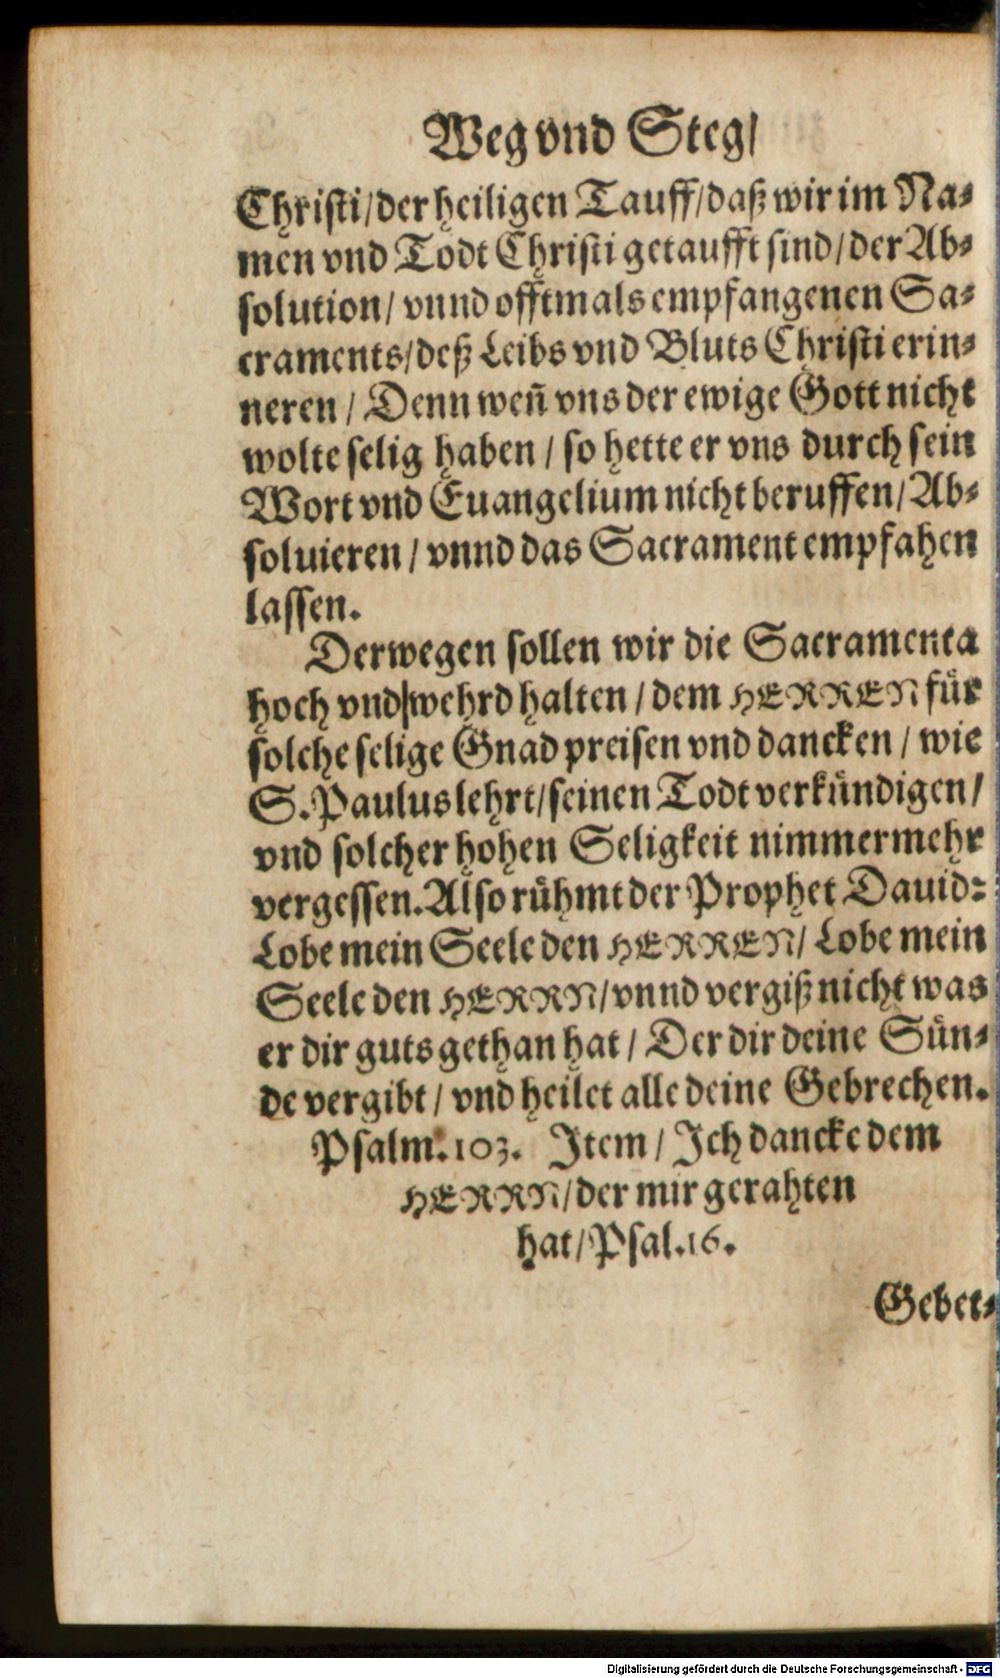 Weg vnd Steg/
Christi/der heiligen Tauff/daß wir im Na-
men vnd Todt Christi getaufft sind/der Ab-
solution/ vnnd offtmals empfangenen Sa-
craments/deß Leibs vnd Bluts Christi erin-
neren / Denn weñ vns der ewige Gott nicht
wolte selig haben / so hette er vns durch sein
Wort vnd Euangelium nicht beruffen/Ab-
soluieren / vnnd das Sacrament empfahen
lassen.
Derwegen sollen wir die Sacramenta
hoch vnd|wehrd halten / dem HERREN für
solche selige Gnad preisen vnd dancken / wie
S. Paulus lehrt/seinen Todt verkündigen/
vnd solcher hohen Seligkeit nimmermehr
vergessen. Also rühmt der Prophet Dauid:
Lobe mein Seele den HERREN/ Lobe mein
Seele den HERRN/vnnd vergiß nicht was
er dir guts gethan hat / Der dir deine Sün-
de vergibt / vnd heilet alle deine Gebrechen.
Psalm. 103. Item / Ich dancke dem
HERRN/der mir gerahten
hat/Psal. 16.
Gebet-
Digitalisierung gefördert durch die Deutsche Forschungsgemeinschaft - DFG